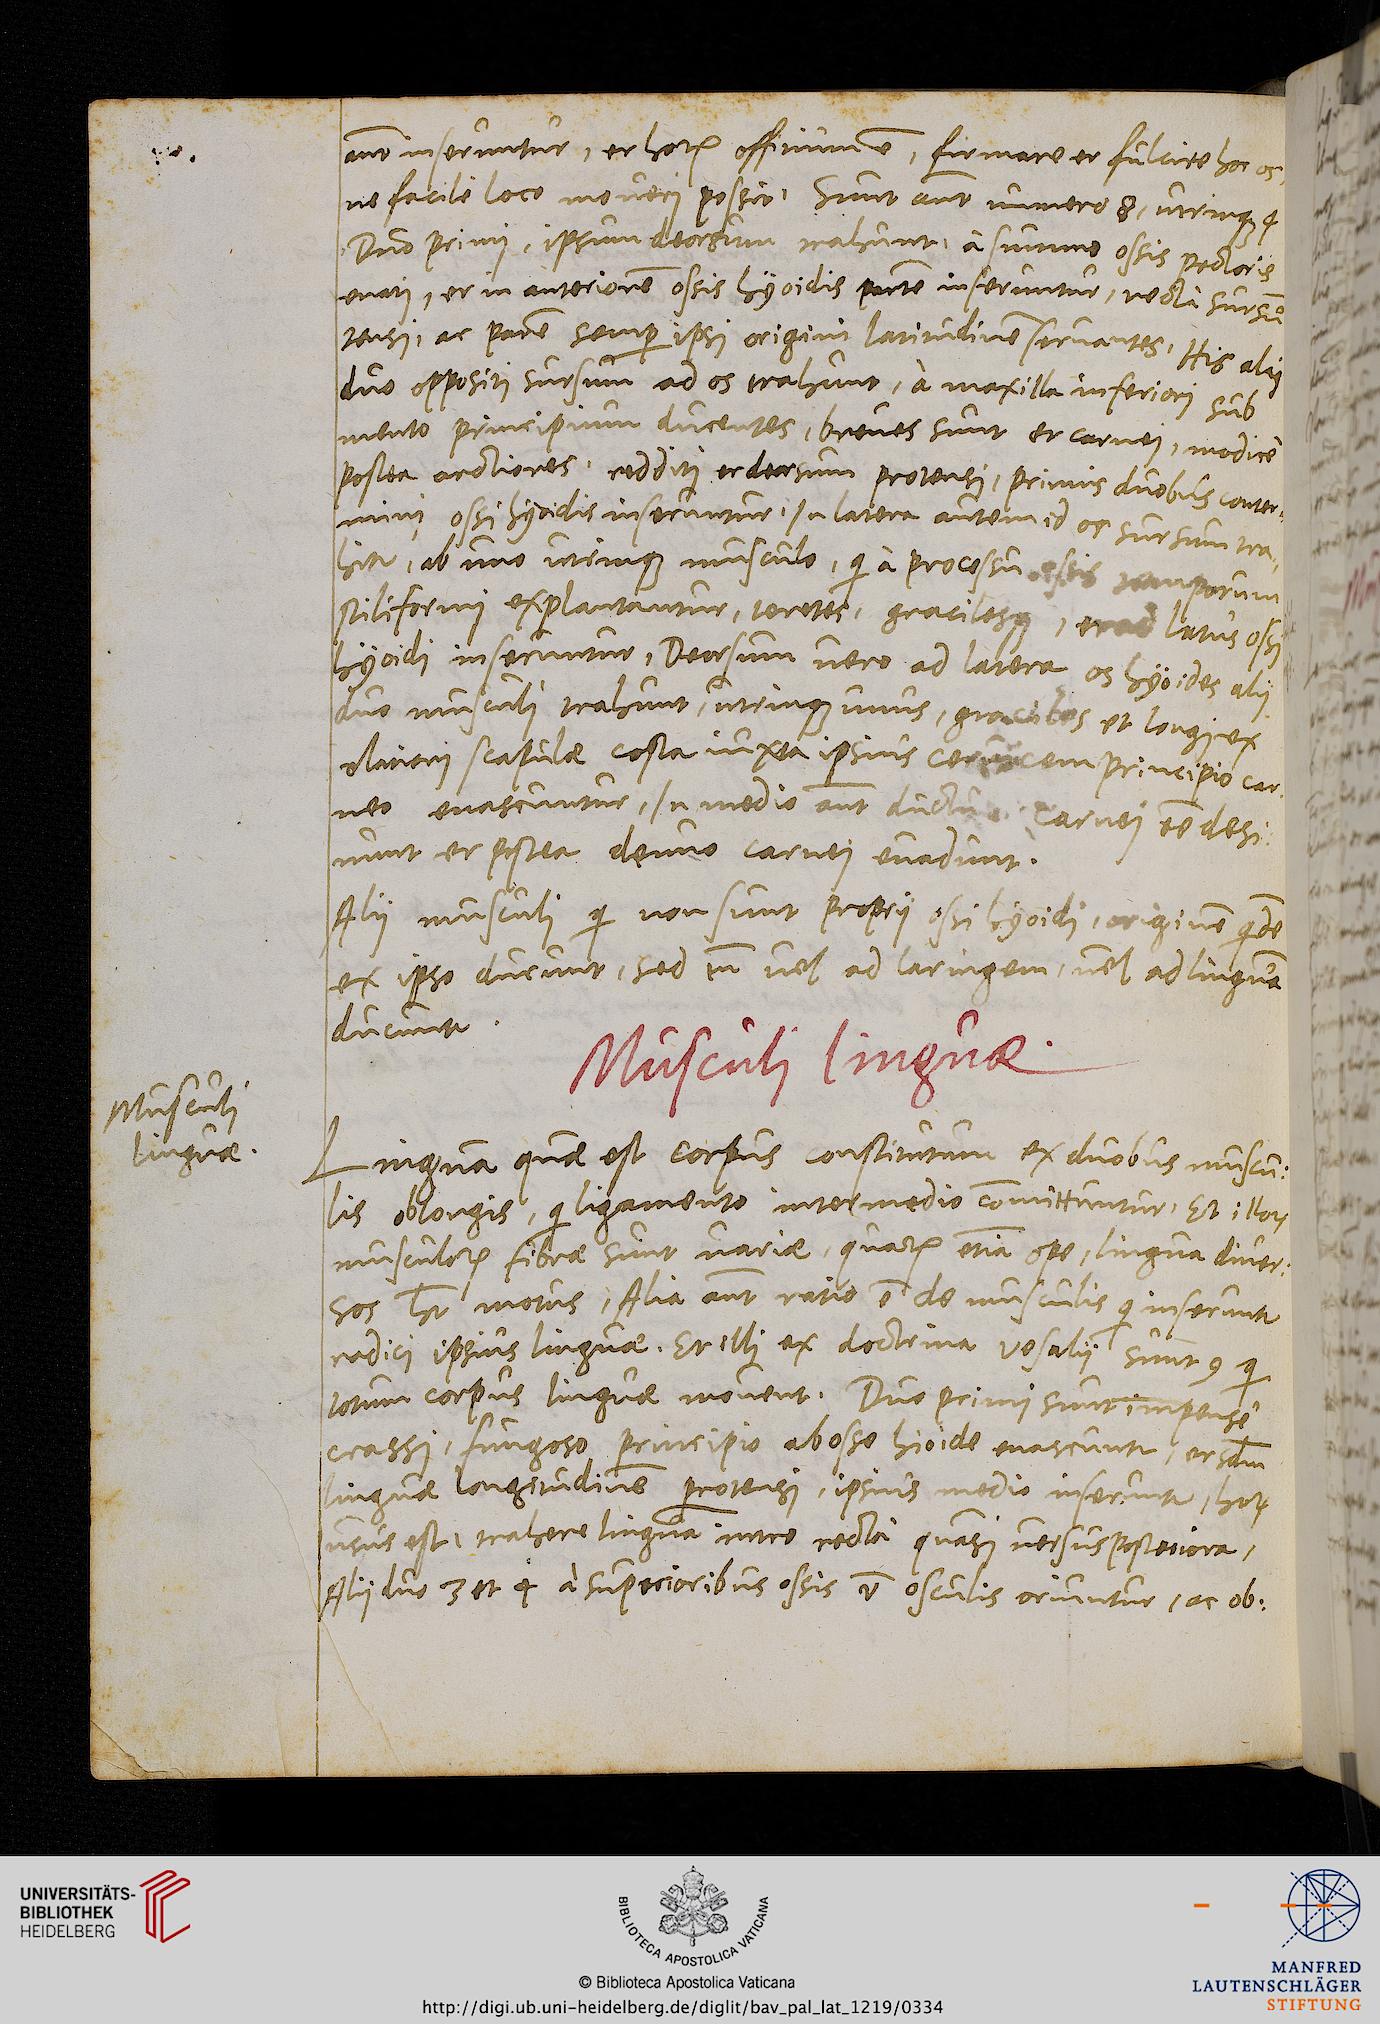 aut̄ inseruntur, et horꝝ offitium ē, firmare et fulcire hoc os,
ne facile loco moueri possit. Sunt aūt numero 8, utrinqꝫ 4
Duo primi, ipsum deorsum trahunt, à summo ossis pectoris
enati, et in anteriorē ossis hÿoidis partē inseruntur, rectà sursū
tensi, ac parē semp̱ ipsi origini latitudinē seruantes. His alij
duo oppositi sursum ad os trahunt, à maxilla inferiori sub
mento principium ducentes, breues sunt et carnei, modicè
postea arctiores redditi et deorsum protensi, primis duobus conter-
mini ossi hÿoidis inseruntur. In latera autem id os sursum tra-
hitr, ab uno utrinqꝫ musculo, qi à processu ossis temporum
stiliformi explantantur, teretes, gracilesqꝫ, et ad latus ossi
hÿoidi inseruntur, Deorsum uero ad latera os hÿoides alij
duo musculi trahunt, utrinqꝫ unus, graciles et longi ex
elatiori scapulæ costa iuxta ipsius ceruicem principio car-
neo enascuntur, In medio aūt ductu carnei eē desi-
nunt et postea denuo carnei euadunt.
Alii musculi qi non sunt proprii ossi hÿoidi, originē qidē
ex ipso ducunt, sed tm̄ uel ad laringem, uel ad linguā
ducuntr.
Musculi linguæ.
Musculi
linguæ.
Lingua quæ est corpus constitutum ex duobus muscu:
lis oblongis, qi ligamento intermedio com̄ittuntur. Et illorꝝ
musculorꝝ fibræ sunt uariæ, quarꝝ etiā ope, lingua diuer:
sos hēt motus, Alia aūt ratio ē de musculis qi inseruntr
radici ipsius linguæ. Et illi ex doctrina Vesalii sunt 9 qi
totum corpus linguæ mouent. Duo primi sunt impensè
crassi, fungoso principio ab osse hioide enascuntr, et scdm̄
linguæ longitudinē protensi, ipsius medio inseruntr, horꝝ
usus est, trahere linguā intro rectà quasi uersus posteriora,
Alij duo 3 et 4 à superioribus ossis υ osculis oriuntur, ac ob:
UNIVERSITÄTS-
BIBLIOTHEK
HEIDELBERG
BIBLIOTECA APOSTOLICA VATICANA
© Biblioteca Apostolica Vaticana
http://digi.ub.uni-heidelberg.de/diglit/bav_pal_lat_1219/0334
MANFRED
LAUTENSCHLÄGER
STIFTUNG